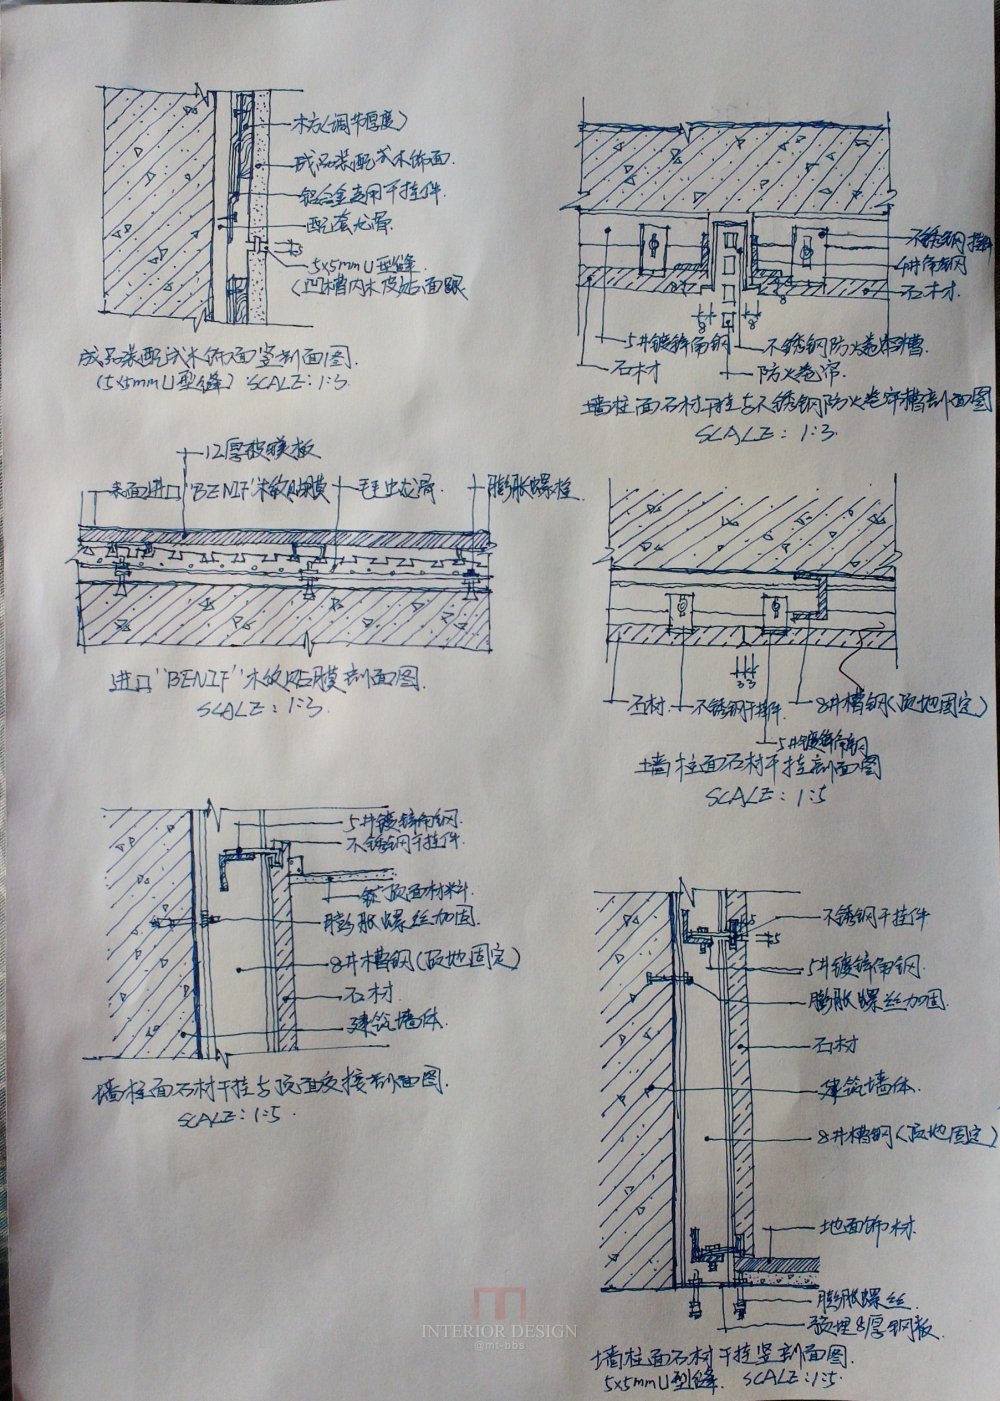 木方(调节厚度)
成品装配式木饰面
铝合金专用干挂件
配套龙骨
5x5mm U型缝
(凹槽内木皮贴面眼
成品装配式木饰面竖剖面图
(5x5mm U型缝) SCALE: 1:3
不锈钢挂件
石材
5
8
8
5#镀锌角钢
不锈钢防火卷帘槽
石材
防火卷帘
墙柱面石材干挂与不锈钢防火卷帘槽剖面图
SCALE: 1:3
12厚玻镁板
表面进口"BENIF"木纹贴膜
卡式龙骨
膨胀螺栓
进口"BENIF"木纹贴膜剖面图
SCALE: 1:3
3 3
石材
不锈钢干挂件
8#槽钢(顶地固定)
5#镀锌角钢
墙柱面石材干挂剖面图
SCALE: 1:5
5#镀锌角钢
不锈钢干挂件
顶面材料
膨胀螺丝加固
8#槽钢(顶地固定)
石材
建筑墙体
墙柱面石材干挂与顶面交接剖面图
SCALE: 1:5
5
5
不锈钢干挂件
5#镀锌角钢
膨胀螺丝加固
石材
建筑墙体
8#槽钢(顶地固定)
地面饰材
膨胀螺丝
预埋8厚钢板
墙柱面石材干挂竖剖面图
5x5mm U型缝 SCALE: 1:5
INTERIOR DESIGN
@mt-bbs